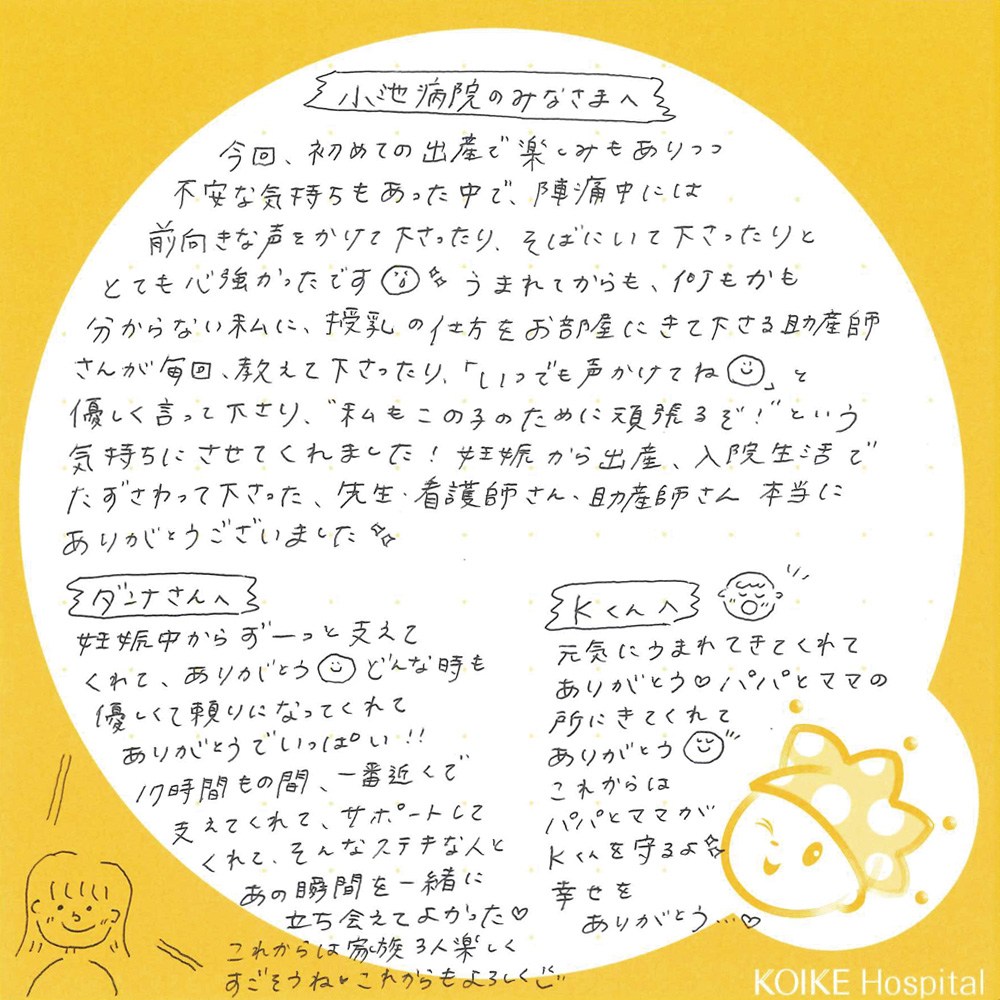 小池病院のみなさまへ
今回、初めての出産で楽しみもありつつ
不安な気持ちもあった中で、陣痛中には
前向きな声をかけて下さったり、そばにいて下さったりと
とても心強かったです うまれてからも、何もかも
分からない私に、授乳の仕方をお部屋にきて下さる助産師
さんが毎回、教えて下さったり、「いつでも声かけてね」と
優しく言って下さり、"私もこの子のために頑張るぞ!"という
気持ちにさせてくれました!妊娠から出産、入院生活で
たずさわって下さった、先生・看護師さん・助産師さん 本当に
ありがとうございました
ダンナさんへ
妊娠中からずーっと支えて
くれて、ありがとう どんな時も
優しくて頼りになってくれて
ありがとうでいっぱい!!
17時間もの間、一番近くで
支えてくれて、サポートして
くれて、そんなステキな人と
あの瞬間を一緒に
立ち会えてよかった♡
これからは家族3人楽しく
すごそうね♥これからもよろしく
Kくんへ
元気にうまれてきてくれて
ありがとう♡パパとママの
所にきてくれて
ありがとう
これからは
パパとママが
Kくんを守るよ
幸せを
ありがとう…♡
KOIKE Hospital